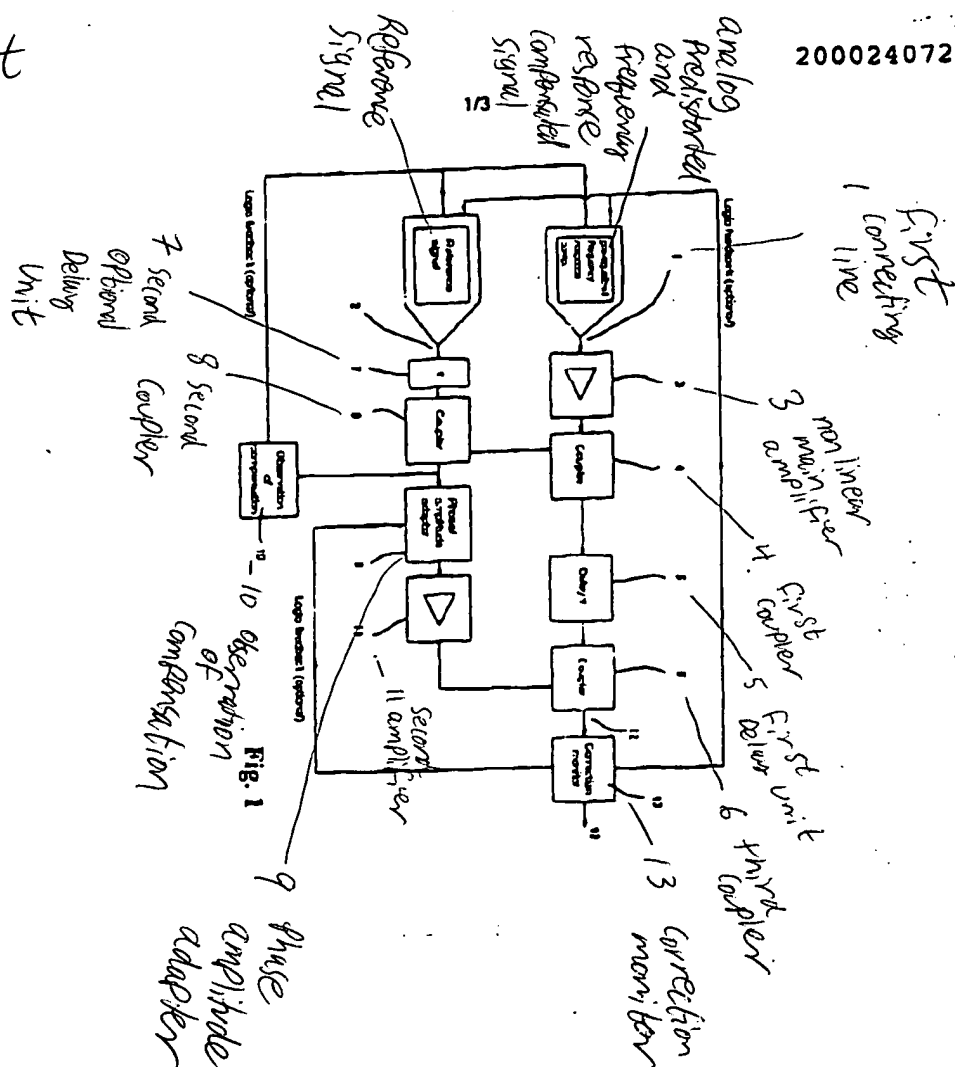 200024072
1/3
analog
Predistorted
and
frequency
response
Compensated
Signal
Reference
Signal
first
1 connecting
line
3 nonlinear
main
amplifier
4. first
coupler
5 first
delay unit
6 third
Coupler
13 Correction
monitor
7 second
optional
Delay
Unit
8 second
Coupler
10 Observation
of
Compensation
second
11 amplifier
9 Phase
amplitude
adapter
Logic feedback 1 (optional)
Logic feedback 1 (optional)
Logic feedback 1 (optional)
frequency
response
Reference
signal
1
2
3
Coupler
Coupler
Coupler
Phase/
amplitude
adaptor
Observation
of
compensation
10
11
12
13
Correction
monitor
Fig. 1